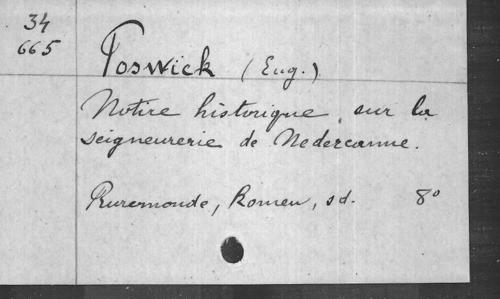 34
665
Poswick (Eug.)
Notice historique sur la
seigneurerie de Nedercanne.
Ruremonde, Romen, sd. 8°